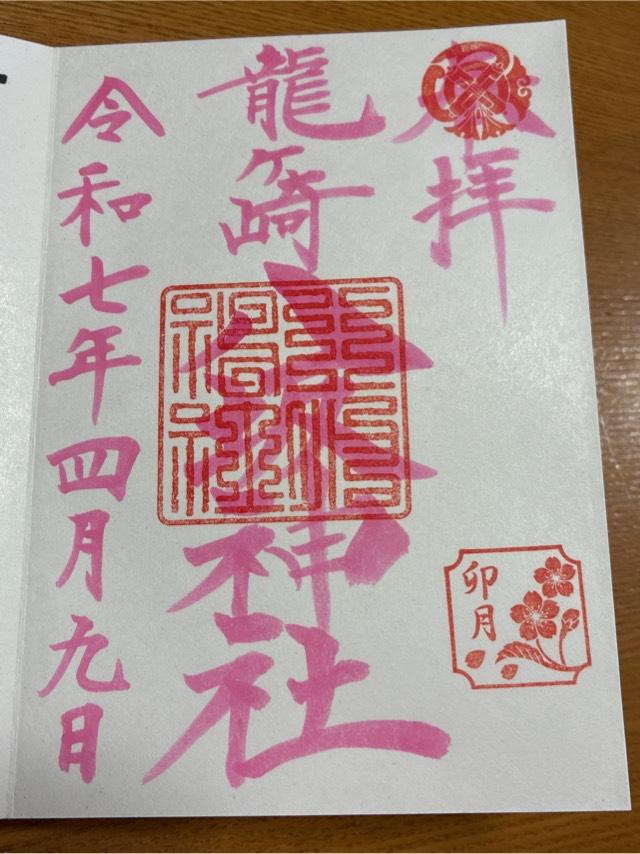 奉拝
龍ヶ崎
八坂
神社
令和七年四月九日
卯月